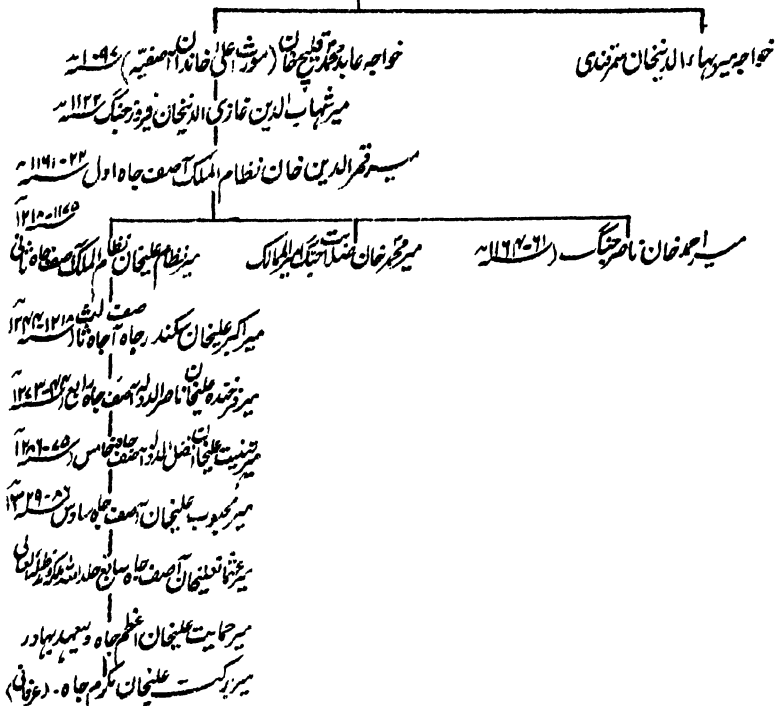 خواجہ میر بہاء الدینخان سمرقندی
خواجہ عابد محمد قلیچ خان (مورث اعلیٰ خاندان آصفیہ) سنہ ۱۰۹۷ھ
میر شہاب الدین غازی الدینخان فیروز جنگ سنہ ۱۱۲۲ھ
میر قمر الدین خان نظام الملک آصف جاہ اول ۲۲-۱۱۶۱ھ
میر احمد خان ناصر جنگ (۶۱-۱۱۶۴ھ
میر محمد خان صلابت جنگ امیر الممالک
میر نظام علیخان نظام الملک آصف جاہ ثانی ۱۱۷۵-۱۲۱۸ھ
میر اکبر علیخان سکندر جاہ آصف جاہ ثالث (۱۲۱۸-۱۲۴۴ھ
میر فرخندہ علیخان ناصر الدولہ آصف جاہ رابع (۴۴-۱۲۷۳ھ
میر تہنیت علیخان افضل الدولہ آصف جاہ خامس (۷۵-۱۲۸۶ھ
میر محبوب علیخان آصف جاہ سادس ۸۶-۱۳۲۹ھ
میر عثمان علیخان آصف جاہ سابع خلد اللہ ملکہ
میر حمایت علیخان اعظم جاہ ولیعہد بہادر
میر برکت علیخان مکرم جاہ - (عرفانی)